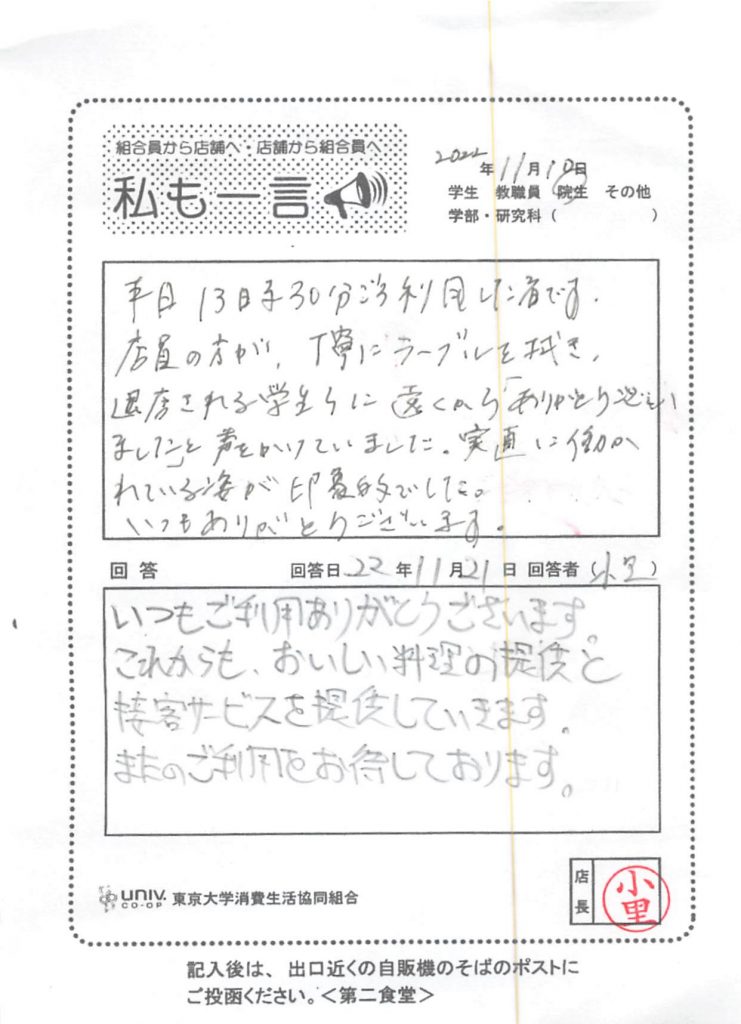 組合員から店舗へ・店舗から組合員へ
私も一言
2022年11月10日
学生 教職員 院生 その他
学部・研究科( )
平日13時30分ごろ利用した者です。
店員の方が、丁寧にテーブルを拭き、
退店される学生らに遠くから「ありがとうござい
ました」と声をかけていました。実直に働か
れている姿が印象的でした。
いつもありがとうございます。
回答 回答日22年11月21日 回答者(小里)
いつもご利用ありがとうございます。
これからも、おいしい料理の提供と
接客サービスを提供していきます。
またのご利用をお待しております。
UNIV. CO-OP 東京大学消費生活協同組合
店長 小里
記入後は、出口近くの自販機のそばのポストに
ご投函ください。<第二食堂>